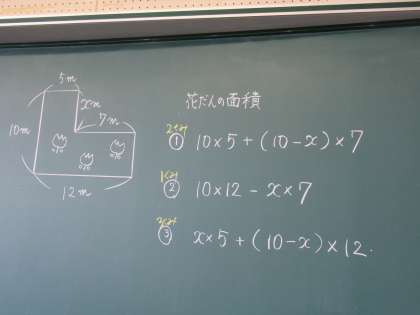 5m
xm
7m
10m
12m
花だんの面積
① 10×5+(10-x)×7
② 10×12-x×7
③ x×5+(10-x)×12.